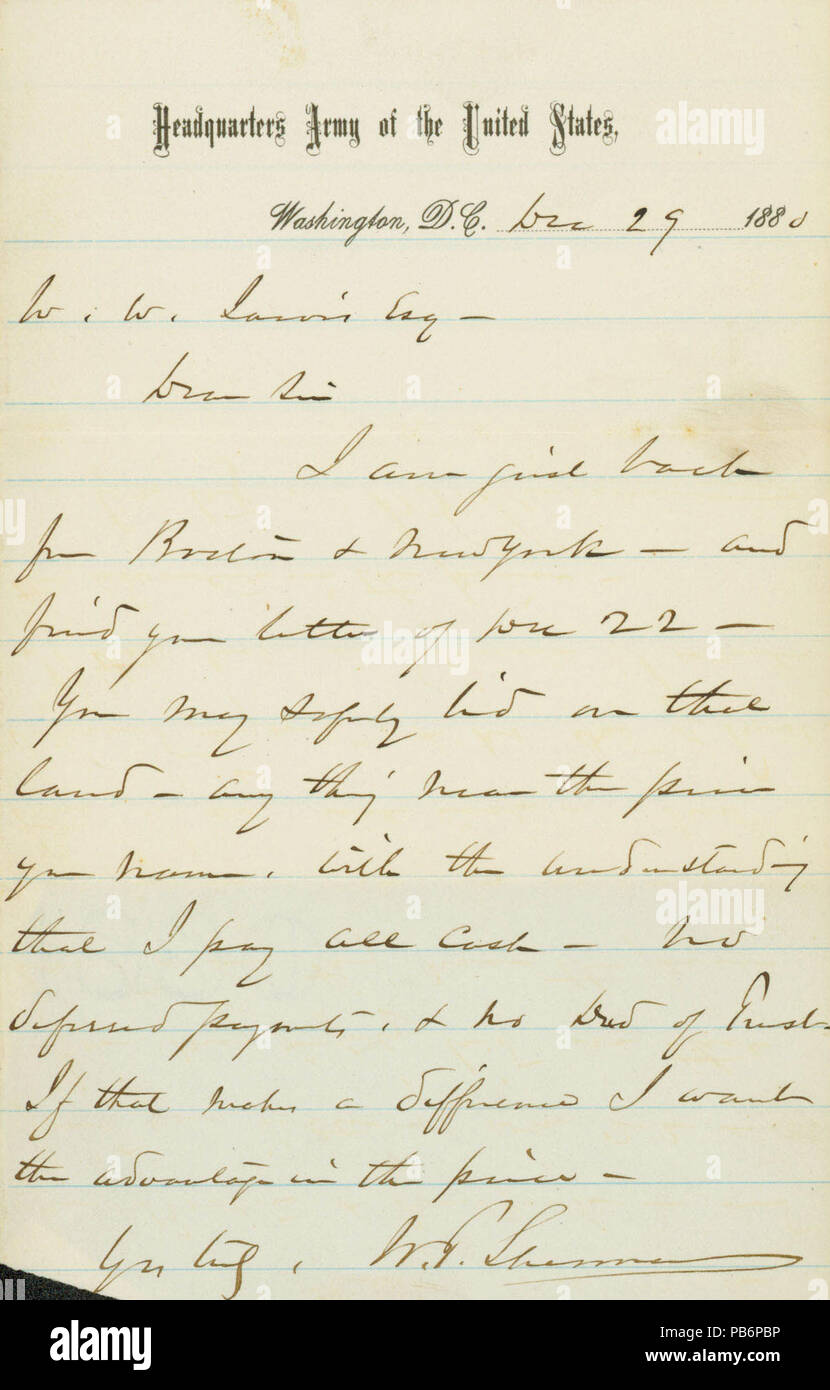 Headquarters Army of the United States,
Washington, D.C. Dec 29 1880
W. W. Esq —
Dear Sir
I am just back
from Boston & New York — and
find your letter of Dec 22 —
You may safely bid on that
land — any thing near the price
you name. with the understanding
that I pay all cash — no
deferred payments, & no Deed of Trust—
If that makes a difference I want
the advantage in the price —
Yrs truly, W. T. Sherman
alamy
Image ID: PB6PBP
www.alamy.com